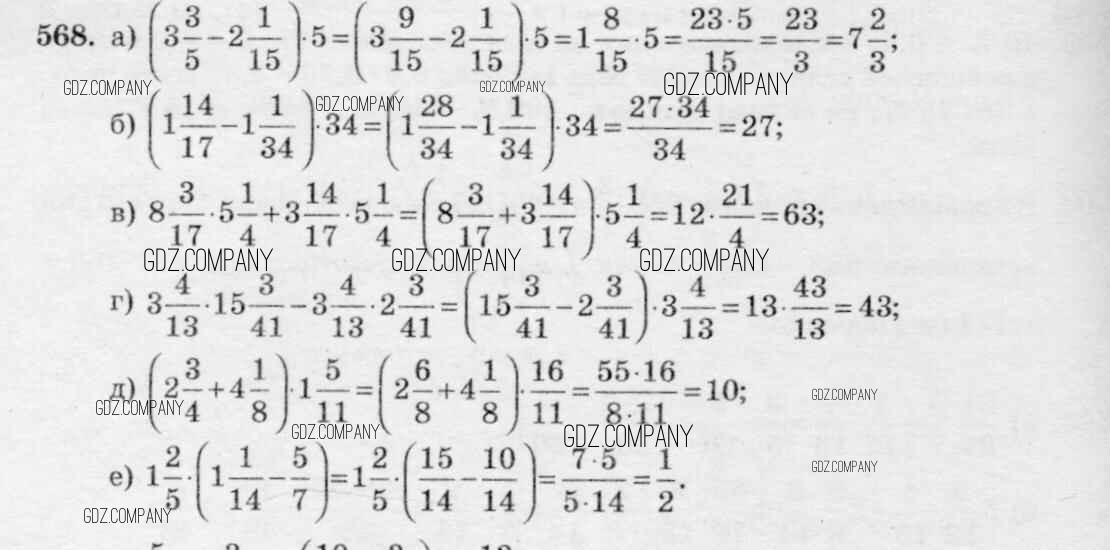 568. а) (3 3/5 − 2 1/15) · 5 = (3 9/15 − 2 1/15) · 5 = 1 8/15 · 5 = 23·5/15 = 23/3 = 7 2/3;
GDZ.COMPANY GDZ.COMPANY GDZ.COMPANY
GDZ.COMPANY
б) (1 14/17 − 1 1/34) · 34 = (1 28/34 − 1 1/34) · 34 = 27·34/34 = 27;
в) 8 3/17 · 5 1/4 + 3 14/17 · 5 1/4 = (8 3/17 + 3 14/17) · 5 1/4 = 12 · 21/4 = 63;
GDZ.COMPANY GDZ.COMPANY GDZ.COMPANY
г) 3 4/13 · 15 3/41 − 3 4/13 · 2 3/41 = (15 3/41 − 2 3/41) · 3 4/13 = 13 · 43/13 = 43;
д) (2 3/4 + 4 1/8) · 1 5/11 = (2 6/8 + 4 1/8) · 16/11 = 55·16/8·11 = 10;
GDZ.COMPANY GDZ.COMPANY
GDZ.COMPANY GDZ.COMPANY
е) 1 2/5 · (1 1/14 − 5/7) = 1 2/5 · (15/14 − 10/14) = 7·5/5·14 = 1/2.
GDZ.COMPANY
GDZ.COMPANY